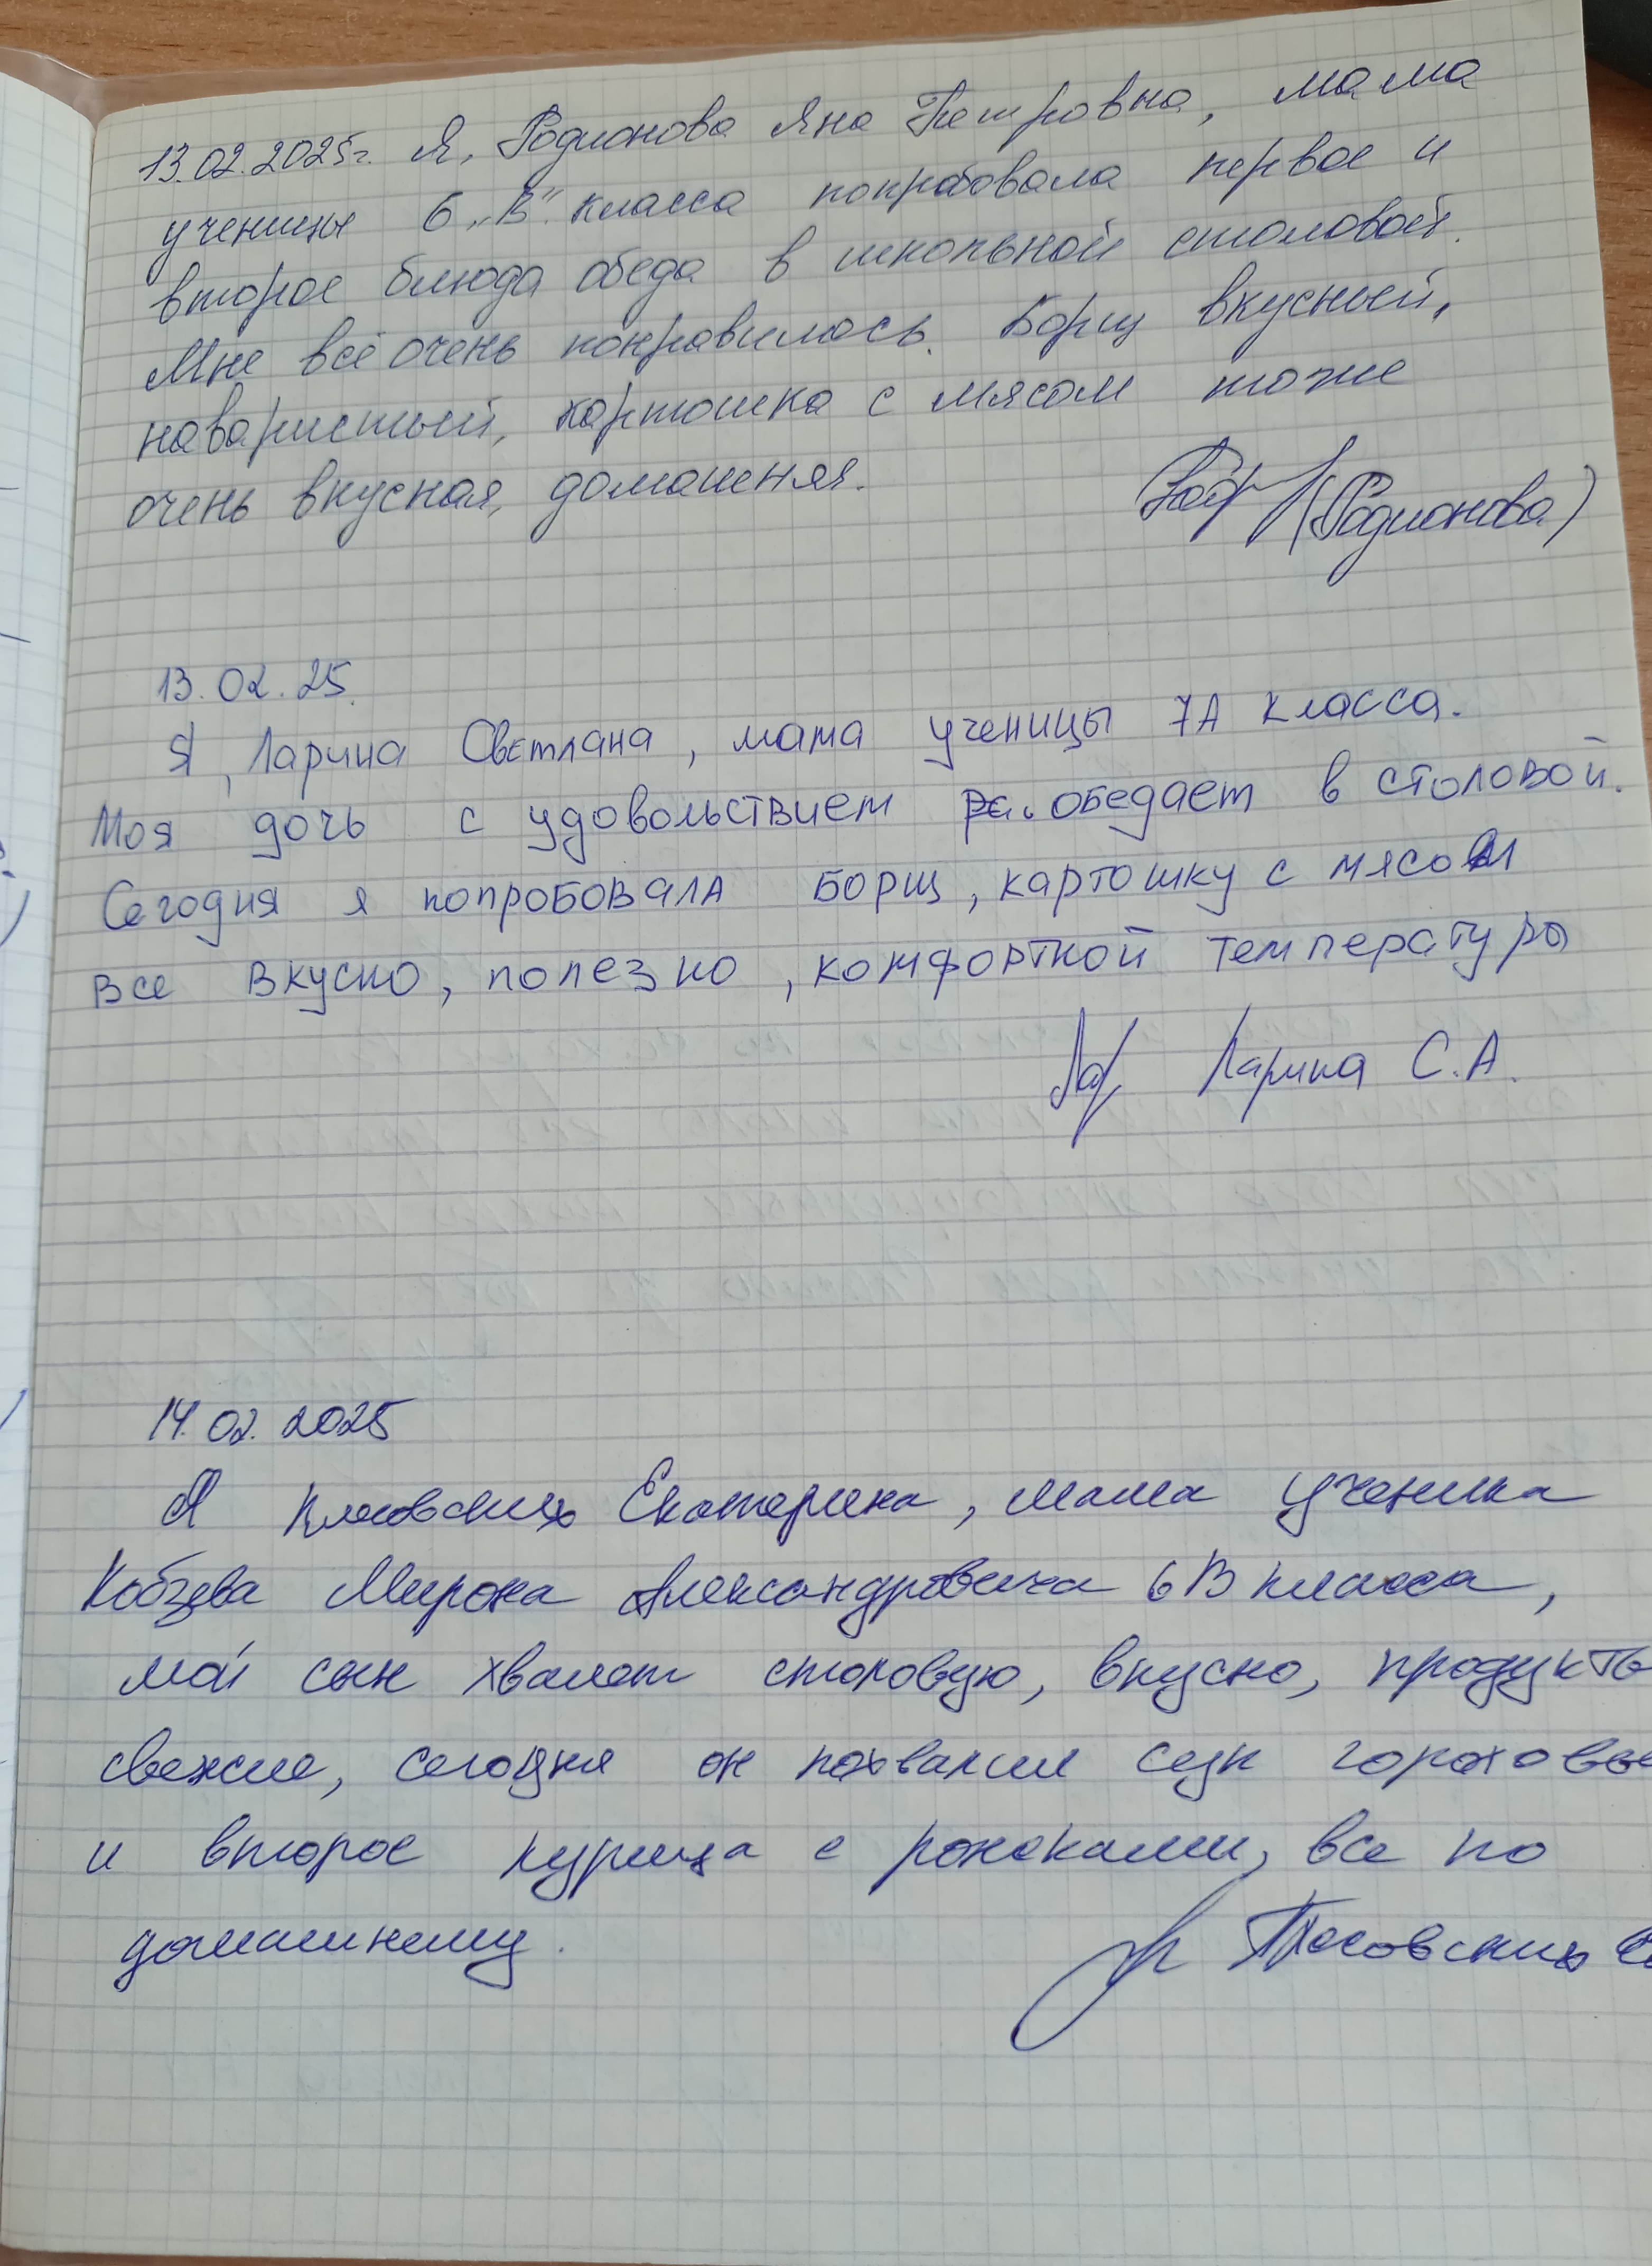 13.02.2025г. Я, Родионова Яна Петровна, мама
ученицы 6 „В" класса попробовала первое и
второе блюда обеда в школьной столовой.
Мне всё очень понравилось. Борщ вкусный,
наваристый, картошка с мясом тоже
очень вкусная, домашняя.
(Родионова)
13.02.25.
Я, Ларина Светлана, мама ученицы 7А класса.
Моя дочь с удовольствием обедает в столовой.
Сегодня я попробовала борщ, картошку с мясом
все вкусно, полезно, комфортной температуры
Ларина С.А.
14.02.2025
Я Екатерина, мама ученика
Кобзева Мирона Александровича 6В класса,
мой сын хвалит столовую, вкусно, продукты
свежие, сегодня он похвалил суп
и второе курица с рожками, все по
домашнему.